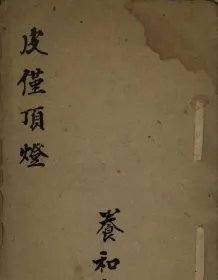 皮僅頂燈
養和